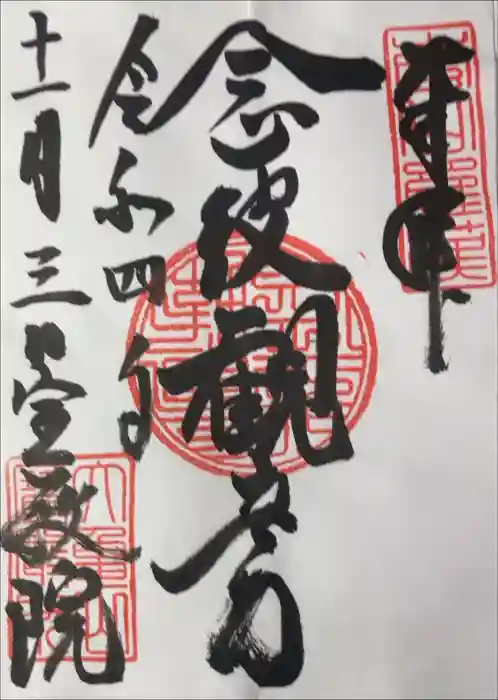 奉拝
念彼観音力
令和四年
十一月三日 宝厳院